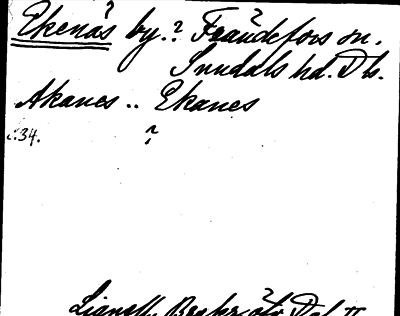 Ekenäs by.? Frändefors sn.
Sundals hd. Ds.
Akanes .. Ekanes
c:34. ?
Lignell, Beskr. öfv. Dal II